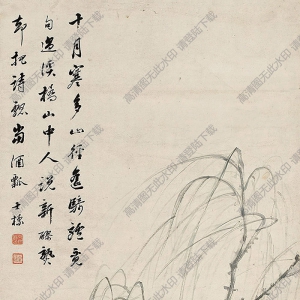 十月寒多山徑遥騎驢竟
句過溪橋山中人說新醪熟
却把詩瓢當酒瓢 士標